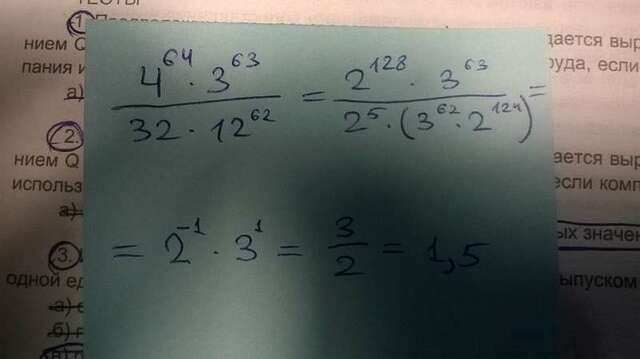 ТЕСТЫ
1.
нием Q дается выр
пания и руда, если
а)
4^64 · 3^63 / 32 · 12^62 = 2^128 · 3^63 / 2^5 · (3^62 · 2^124) =
2.
нием Q ается выр
использ если комп
а) ых значен
= 2^-1 · 3^1 = 3/2 = 1,5
3.
одной ед выпуском
а)
б)
в)